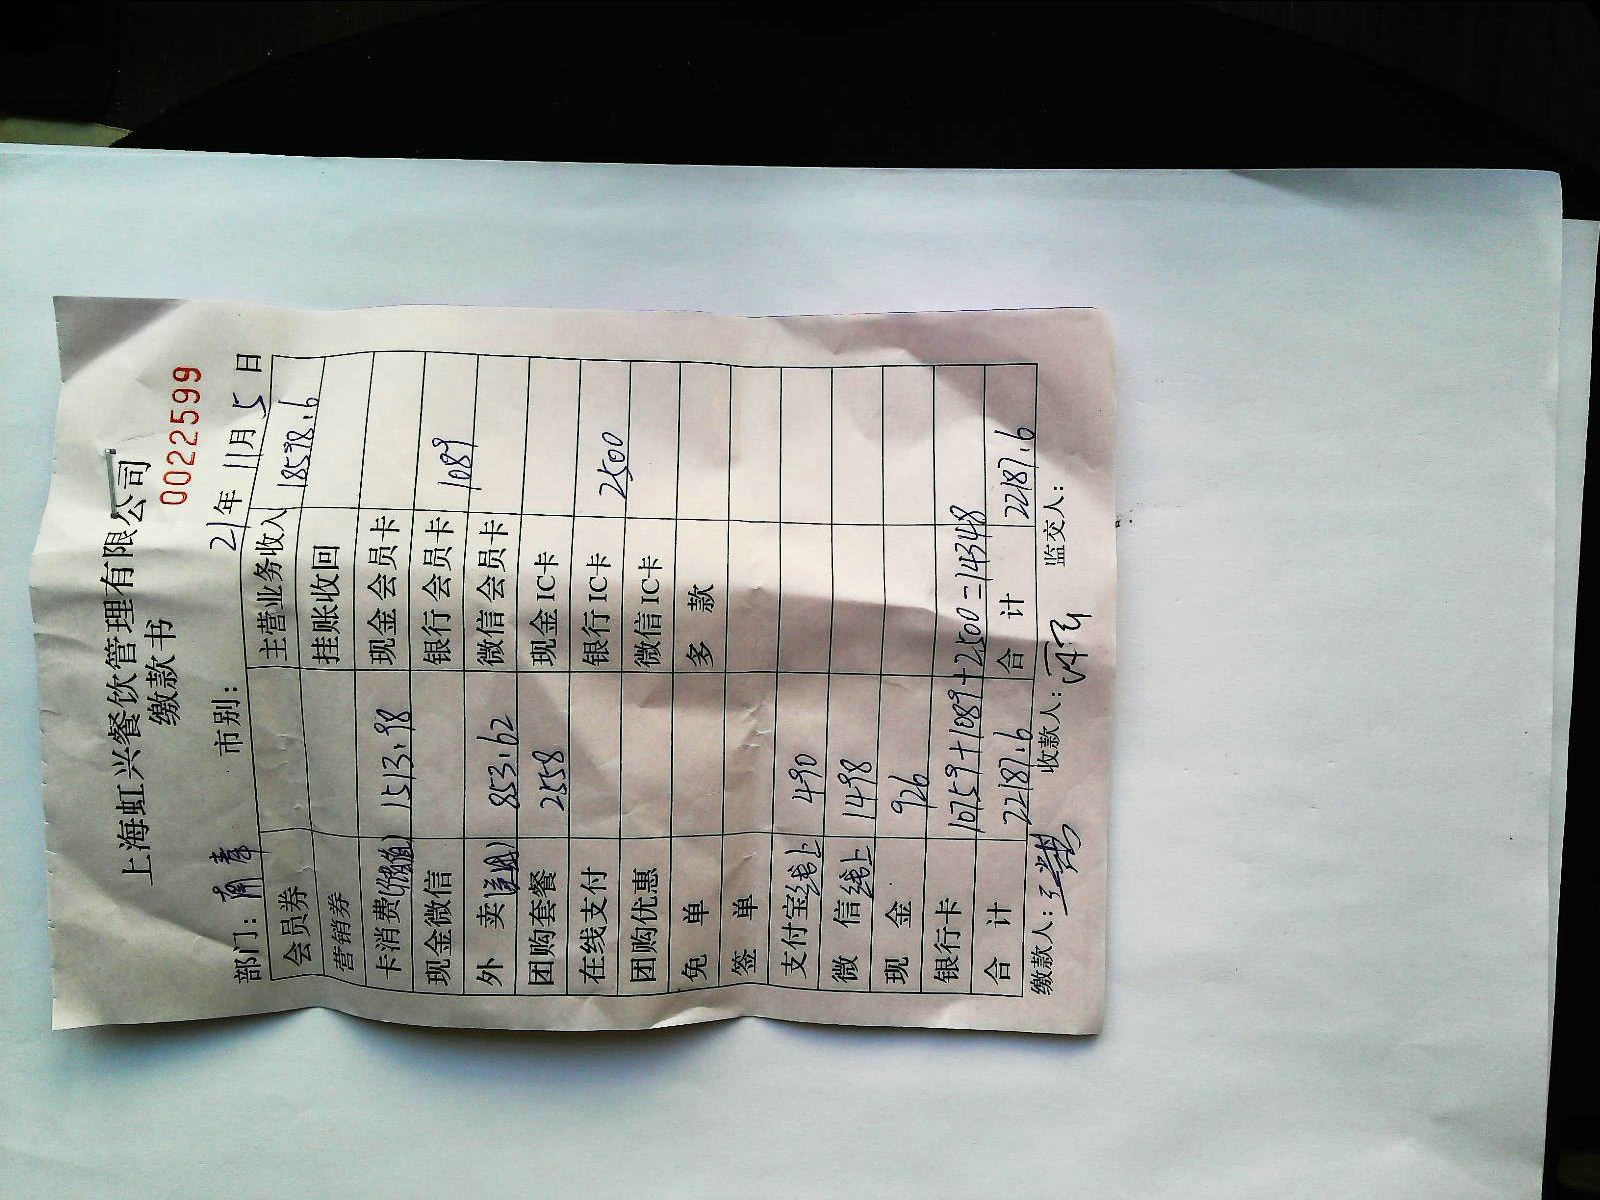 上海虹兴餐饮管理有限公司
缴款书
0022599
部门: 市别: 21年 11月 5日
会员券 主营业务收入 18598.6
营销券 挂账收回
卡消费 1513.98 现金会员卡
现金微信 银行会员卡 1089
外 卖 853.62 微信会员卡
团购套餐 2558 现金IC卡
在线支付 银行IC卡 2500
团购优惠 微信IC卡
免 单 多 款
签 单
支付宝线上 490
微 信线上 1498
现 金 926
银行卡 10759+1089+2500=14348
合 计 22187.6 合 计 22187.6
缴款人: 收款人: 监交人: